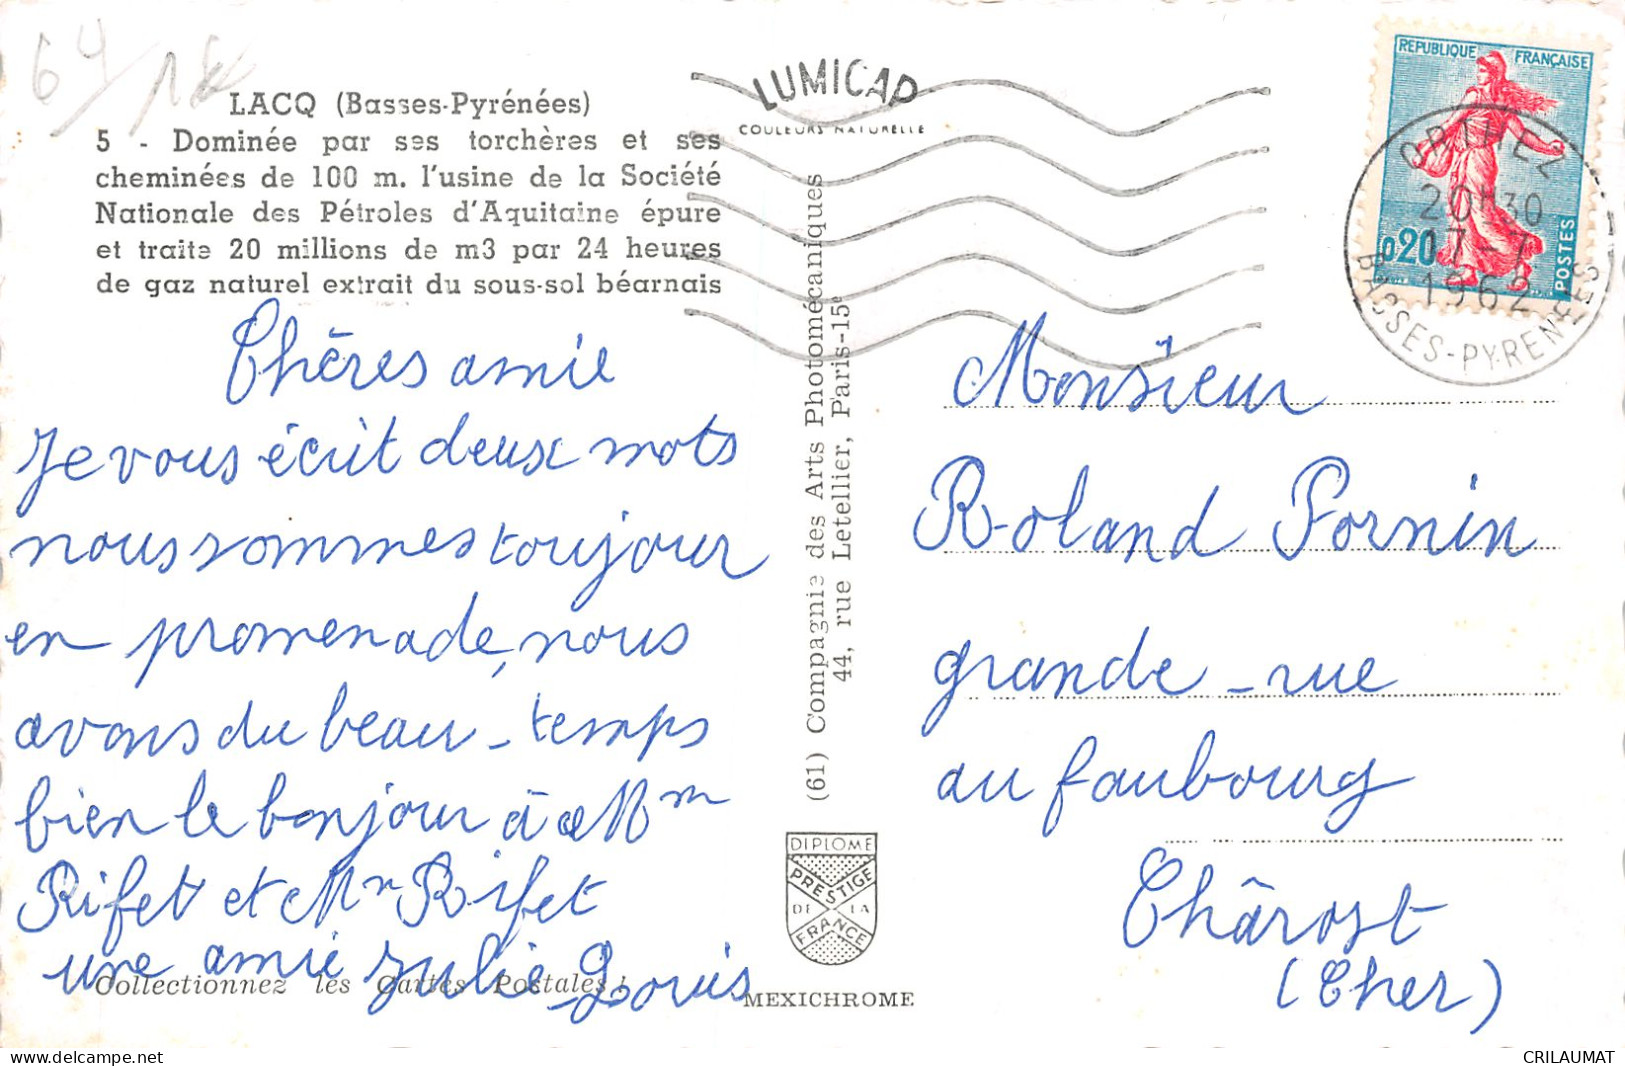 64/18
LACQ (Basses-Pyrénées)
5 - Dominée par ses torchères et ses
cheminées de 100 m. l'usine de la Société
Nationale des Pétroles d'Aquitaine épure
et traite 20 millions de m3 par 24 heures
de gaz naturel extrait du sous-sol béarnais
Chères amie
Je vous écrit deux mots
nous sommes toujour
en promenade, nous
avons du beau-temps
bien le bonjour à Mm
Rifet et Mr Rifet
une amie Julie-Louis
Collectionnez les Cartes Postales !
LUMICAP
COULEURS NATURELLE
(61) Compagnie des Arts Photomécaniques
44, rue Letellier, Paris-15e
DIPLOME
PRESTIGE
DE LA
FRANCE
MEXICHROME
REPUBLIQUE FRANÇAISE
0,20
POSTES
ORTHEZ
20H30
17-7
1962
BASSES-PYRENEES
Monsieur
Roland Fornin
grande-rue
au faubourg
Chârost
(Cher)
www.delcampe.net
CRILAUMAT